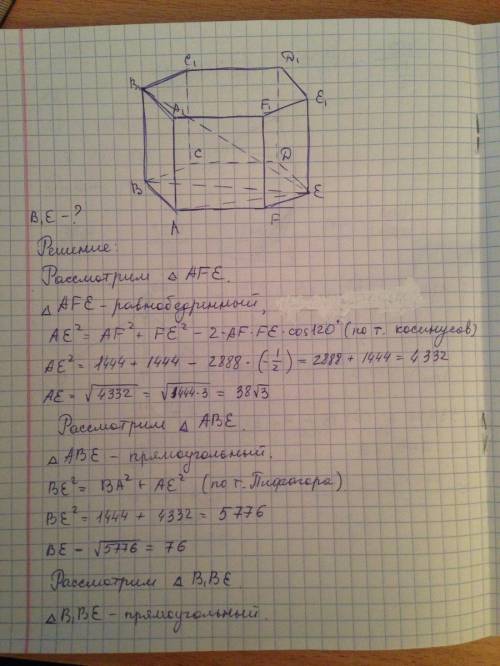 C₁
D₁
B₁
A₁
F₁
E₁
C
D
B
E
A
F
B₁E - ?
Решение:
Рассмотрим △ AFE.
△ AFE - равнобедренный,
AE² = AF² + FE² - 2·AF·FE·cos120° (по т. косинусов)
AE² = 1444 + 1444 - 2888·(-1/2) = 2888 + 1444 = 4332
AE = √4332 = √1444·3 = 38√3
Рассмотрим △ ABE.
△ ABE - прямоугольный.
BE² = BA² + AE² (по т. Пифагора)
BE² = 1444 + 4332 = 5776
BE - √5776 = 76
Рассмотрим △ B₁BE.
△ B₁BE - прямоугольный.